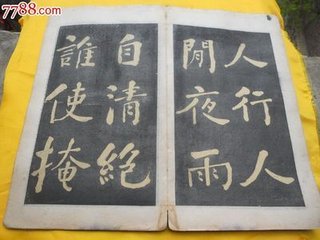 7788.com
人行人
閒夜雨
自清絕
誰使掩